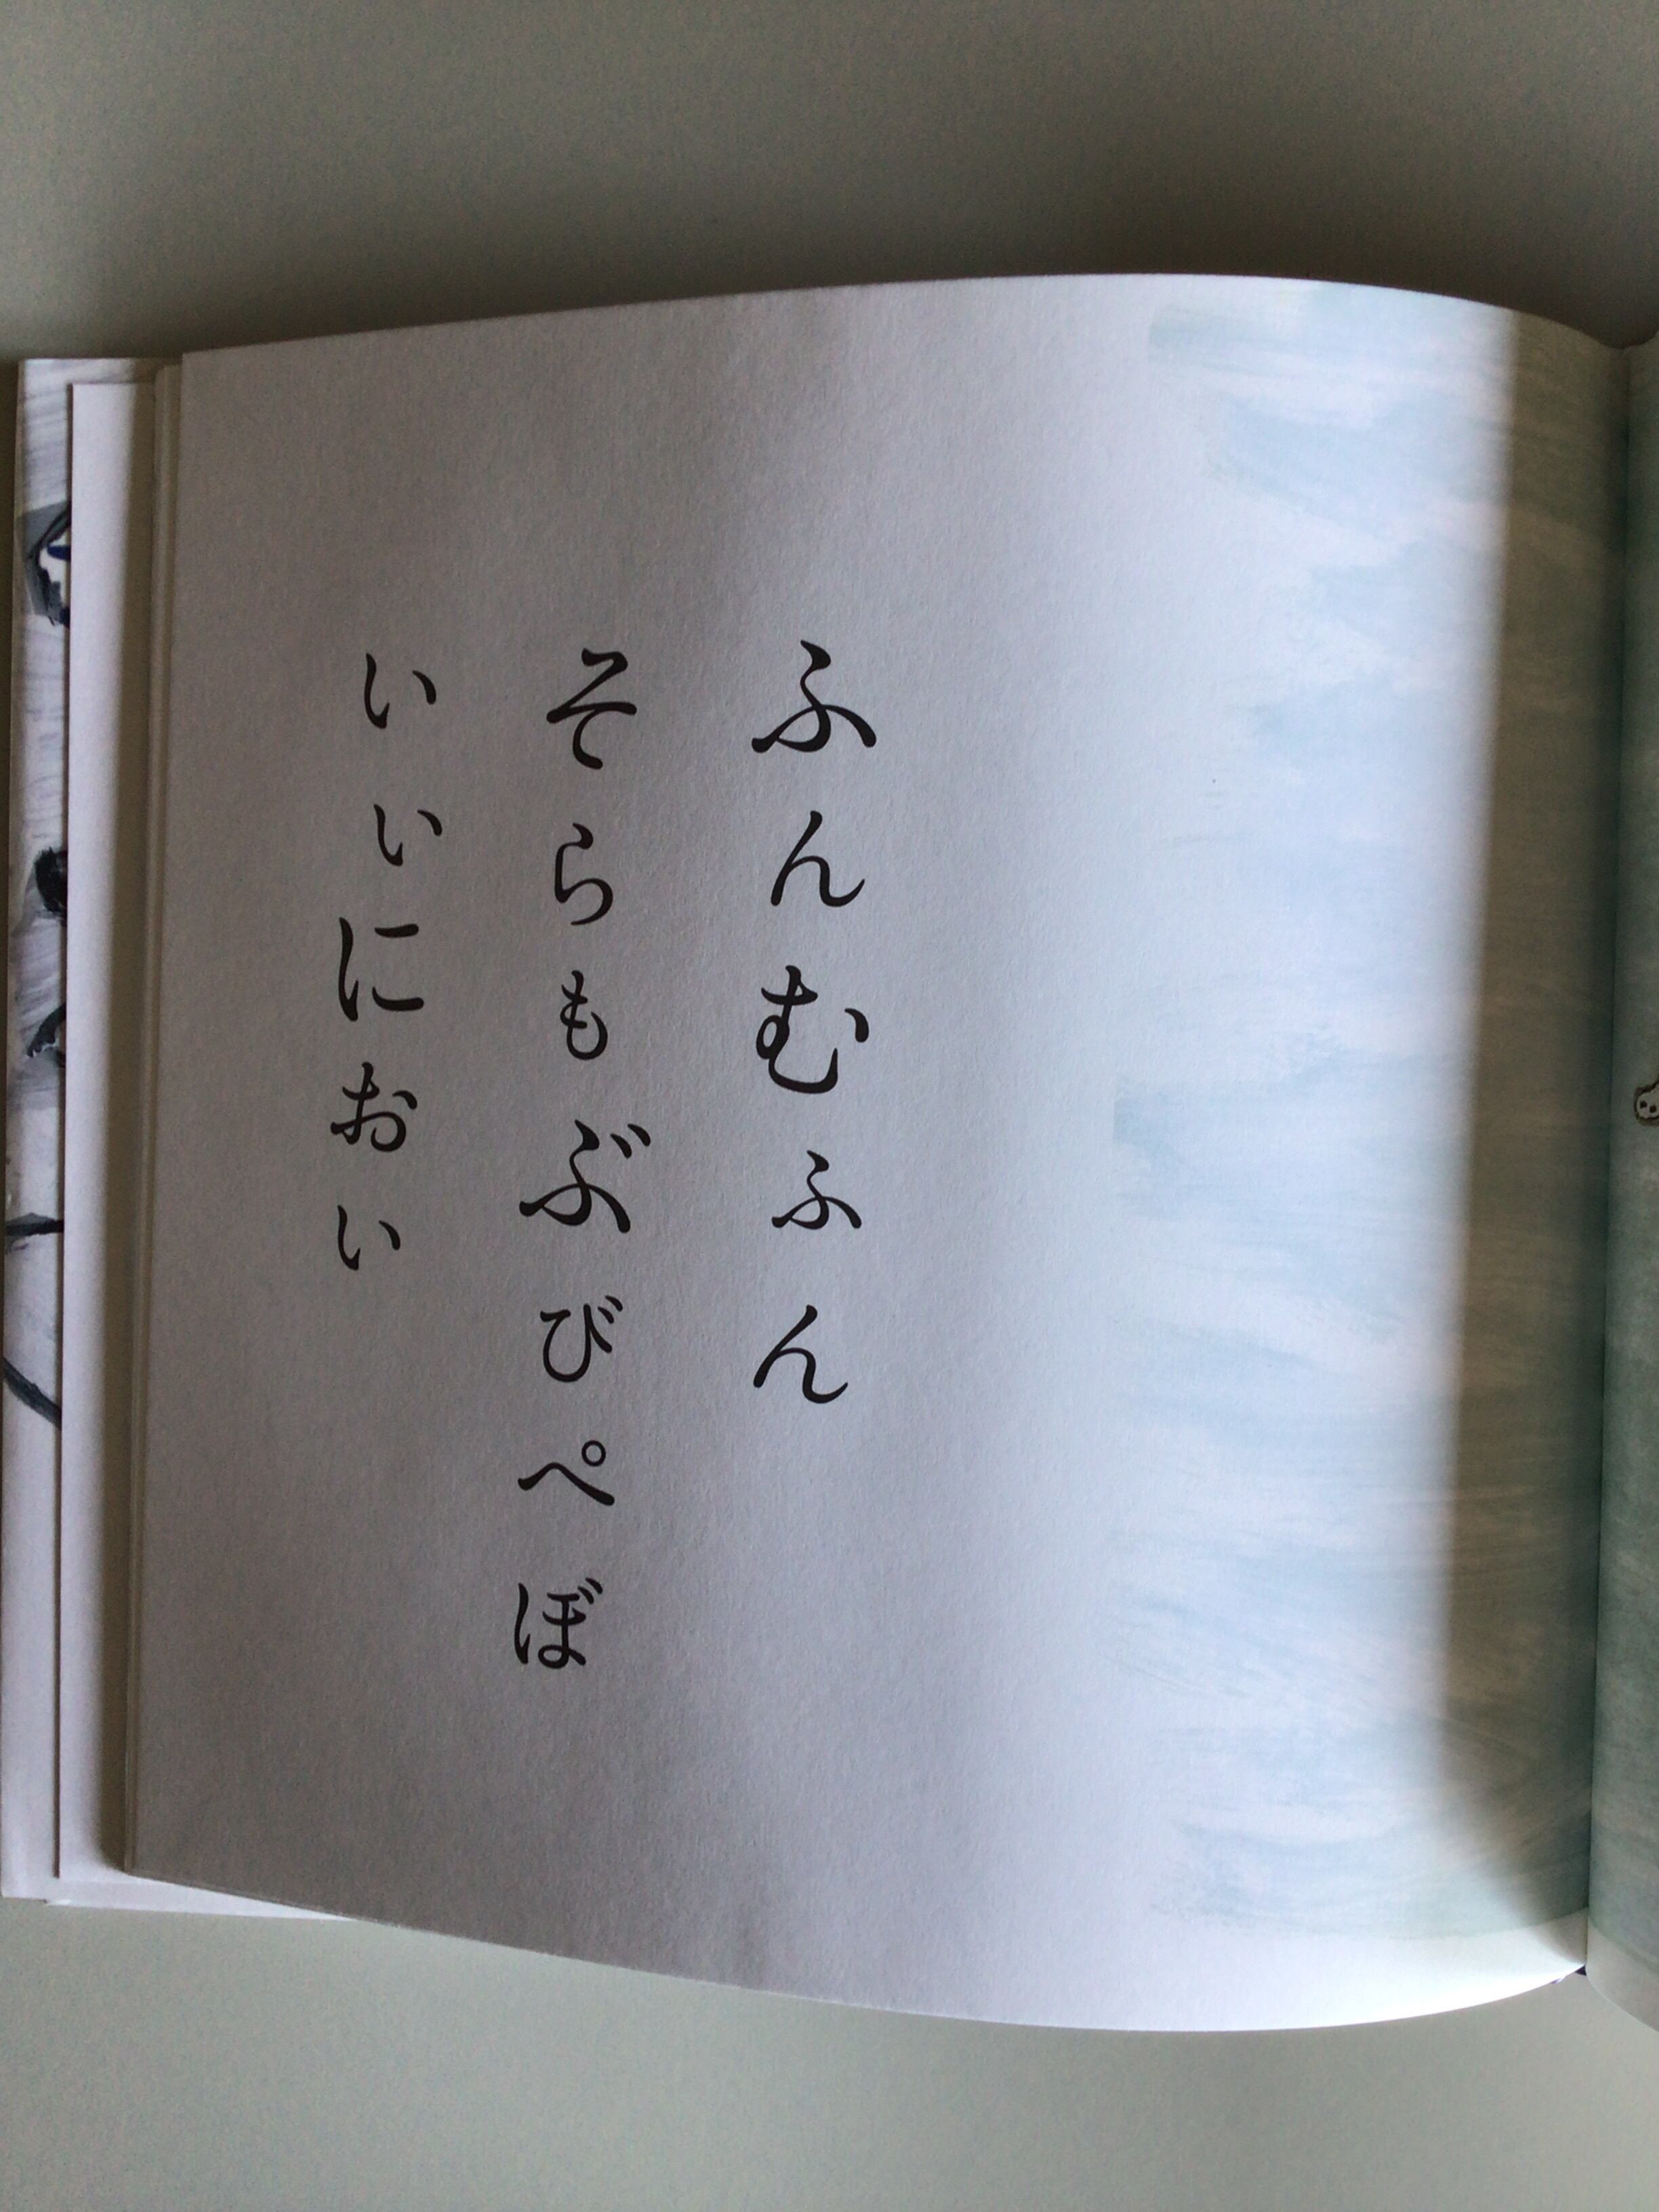 ふんむふん
そらもぶびぺぼ
いいにおい